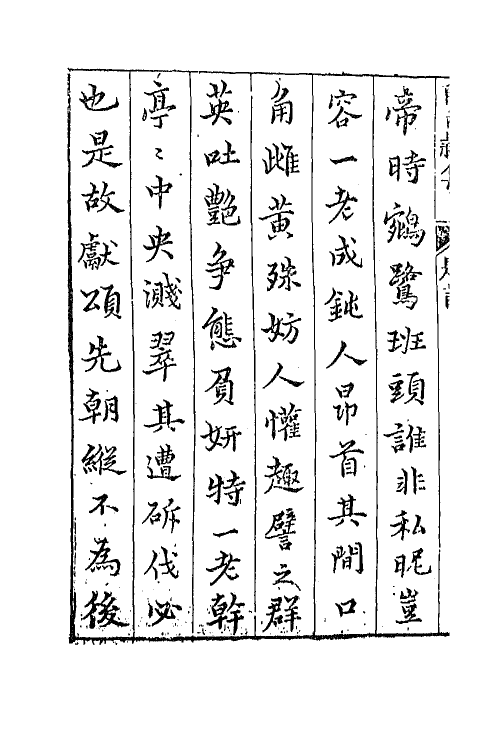 帝時鵷鷺班頭誰非私昵豈
容一老成鈍人昂首其間口
角雌黄殊妨人懽趣譬之群
英吐艷争態負妍特一老幹
亭〻中央濺翠其遭斫伐必
也是故獻頌先朝縱不為後